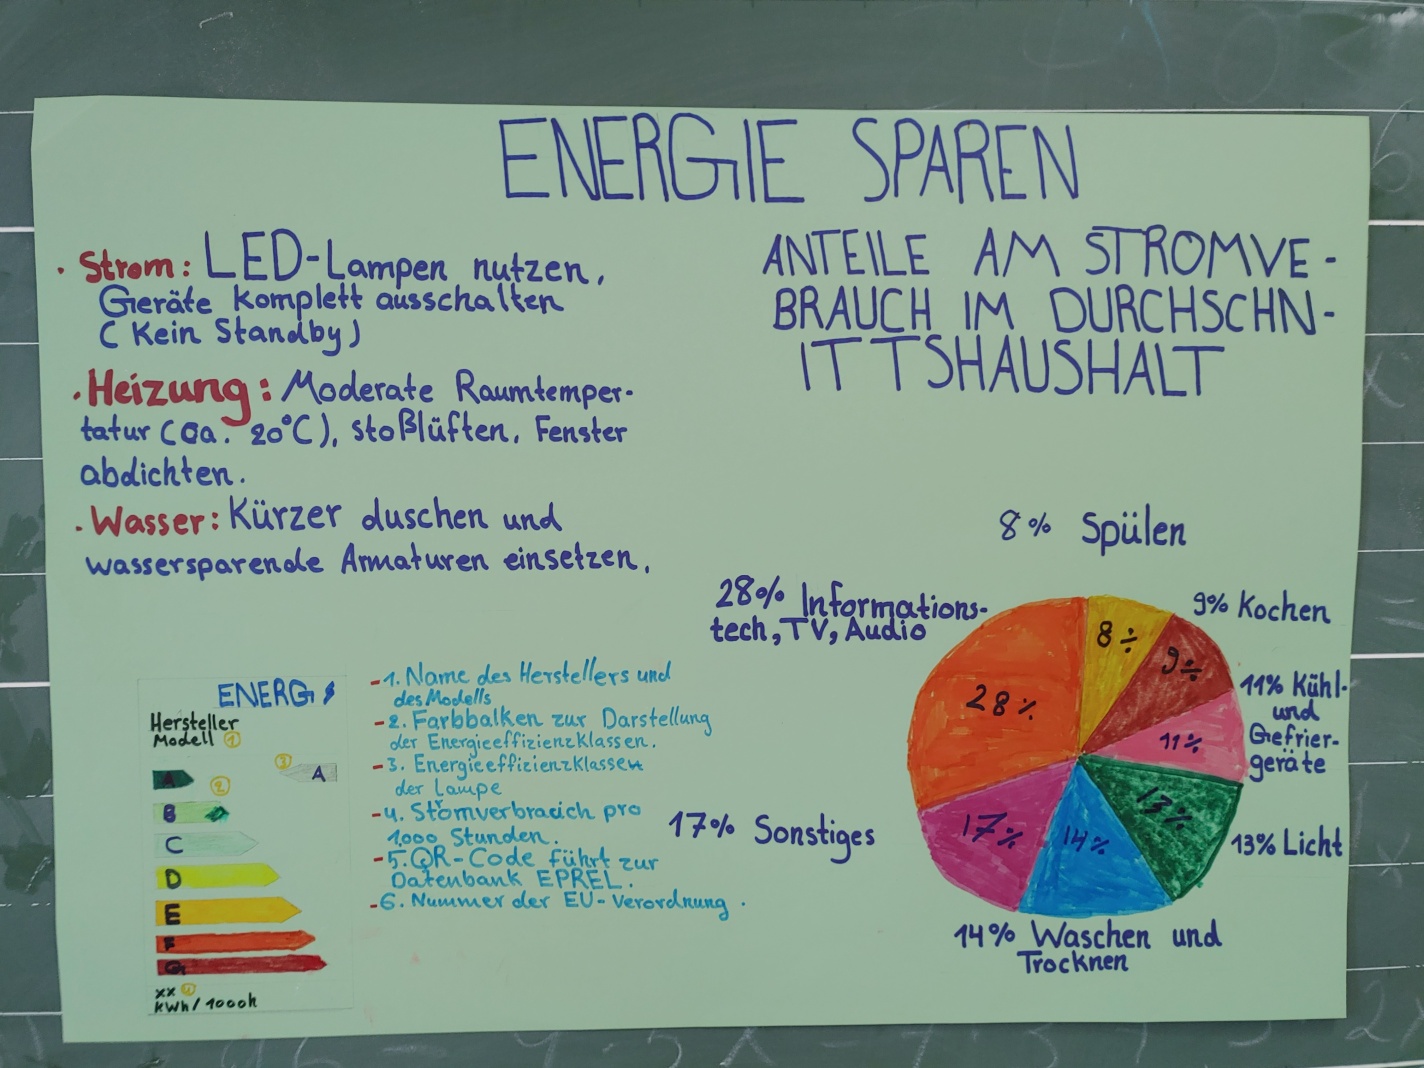 ENERGIE SPAREN
· Strom: LED-Lampen nutzen,
Geräte komplett ausschalten
(Kein Standby)
· Heizung: Moderate Raumtemper-
tatur (ca. 20°C), stoßlüften, Fenster
abdichten.
· Wasser: Kürzer duschen und
wassersparende Armaturen einsetzen.
ANTEILE AM STROMVE-
BRAUCH IM DURCHSCHN-
ITTSHAUSHALT
8% Spülen
28% Informations-
tech, TV, Audio
9% Kochen
11% Kühl-
und
Gefrier-
geräte
13% Licht
14% Waschen und
Trocknen
17% Sonstiges
8%
9%
11%
13%
14%
17%
28%
ENERG
Hersteller
Modell 1
3 A
A
2
B
C
D
E
F
G
xx 4
kWh/1000h
-1. Name des Herstellers und
des Modells
-2. Farbbalken zur Darstellung
der Energieeffizienzklassen.
-3. Energieeffizienzklassen
der Lampe
-4. Stromverbrauch pro
1000 Stunden.
-5. QR-Code führt zur
Datenbank EPREL.
-6. Nummer der EU-Verordnung.